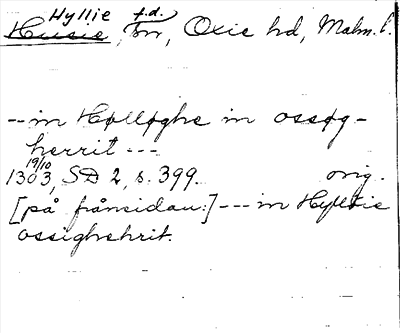 Hyllie f.d.
Husie, sn, Oxie hd, Malm. l.
--- in Hølløghe in ossøg-
herrit ---
19/10
1303, SD 2, s. 399. orig.
[på frånsidan:] --- in Hylloie
ossighehrit.